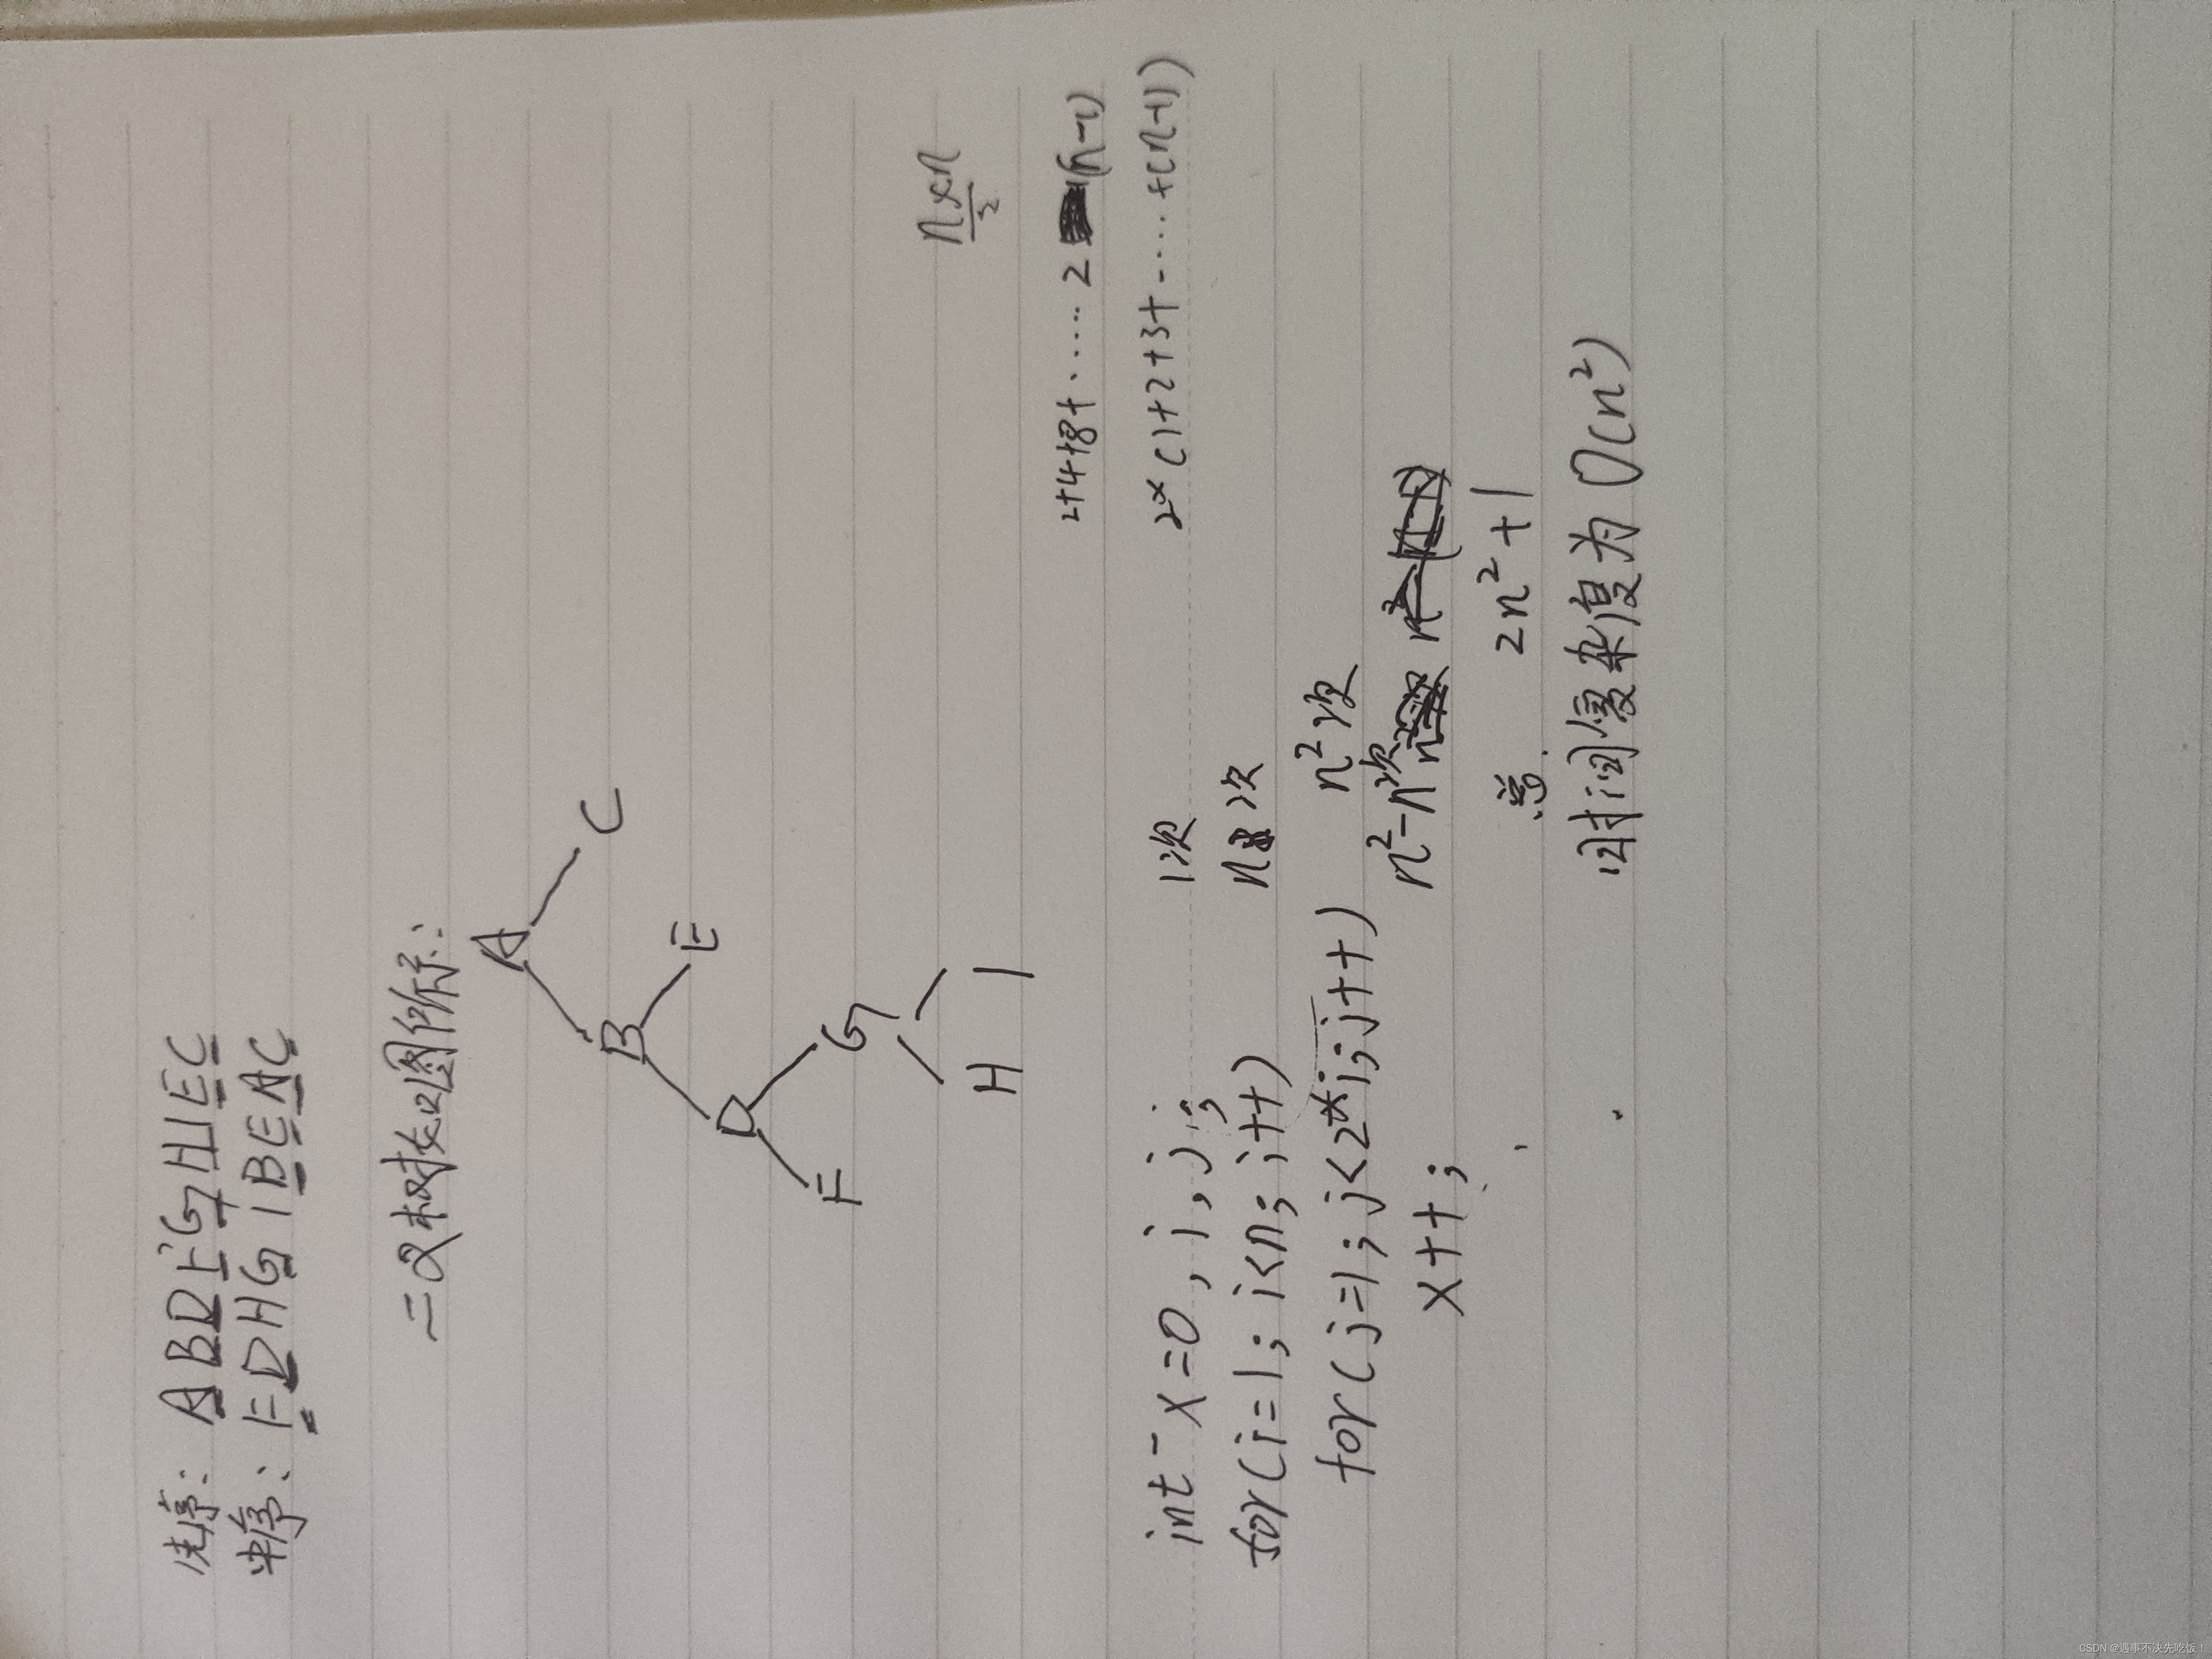 先序: ABDFGHIEC
中序: FDHGIBEAC
二叉树如图所示:
A
B C
D E
F G
H I
n×n
2
2+4+8+ ..... 2 (n-1)
2*(1+2+3+ ...... +(n-1))
int x=0, i, j; 1次
for(i=1; i<n; i++) n次
for(j=1; j<2*i; j++) n²次
x++; n²-n次
总 2n²+1
时间复杂度为 O(n²)
CSDN @遇事不决先吃饭!